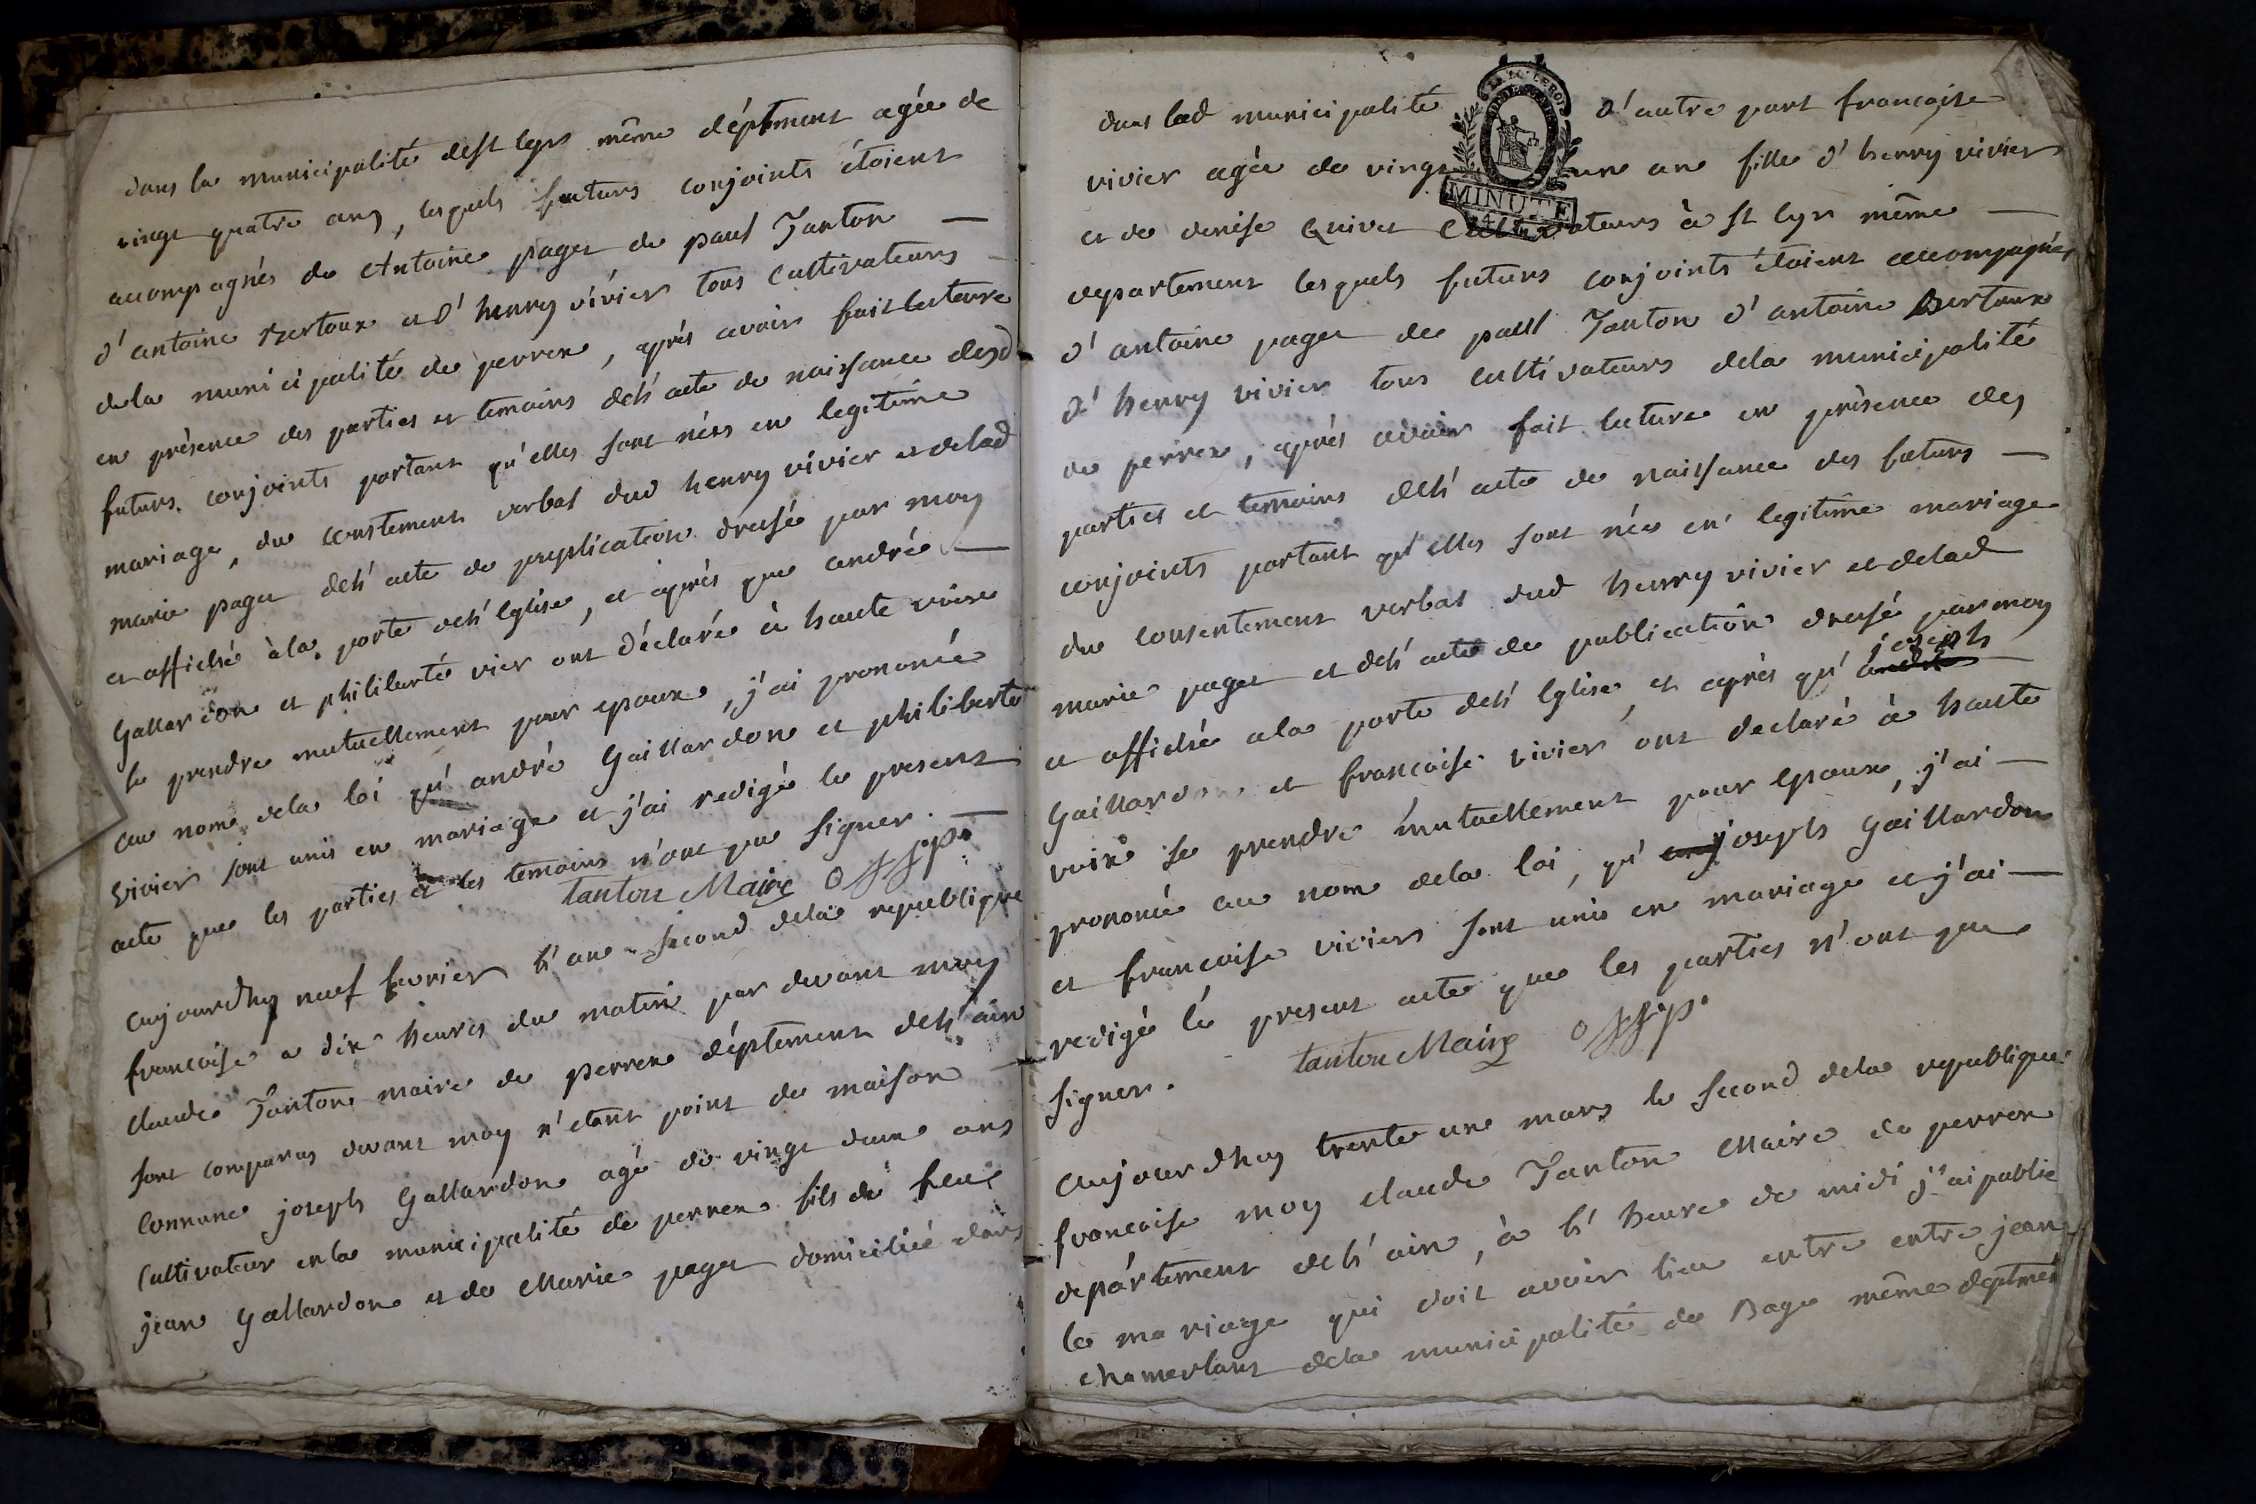 dans la municipalité dest Cyr même déptment agée de
vingt quatre ans, lesquels futurs conjoints étoient
accompagnés de Antoine pagei de paul Tanton —
d'antoine Bertoux et d'henry vivier tous Cultivateurs
dela municipalité de perrex, aprés avoir fait lecture
en présence des parties et temoins del'acte de naissance desd
futurs conjoints portant qu'elles sont nées en legitime
mariage, du consentement verbal dud henry vivier et delad
marie pagei del'acte de publication dressé par moy
et affiché àla porte del'Eglise, et aprés que andré —
Gallardon et philiberte vier ont déclaré à haute voix
se prendre mutuellement pour epoux, j'ai prononcé
au nom dela loi qu'andré Gaillardon et philiberte
Vivier sont unis en mariage et j'ai redigé le present
acte que les parties et les temoins n'ont pu signer. —
tanton Maire off p.
aujourdhuy neuf fevrier l'an second dela republique
francoise a dix heures du matin par devant moy
claude Tanton maire de perrex déptement del'ain
sont comparus devant moy n'etant point de maison —
Commune joseph Gallardon agé de vingt deux ans
Cultivateur en la municipalité de perrex fils de feu
jean Gallardon et de Marie pagei domiciliée dans
dans lad municipalité d'autre part francoise
vivier agée de vingt un an fille d'henry vivier
et de denise Quivet Cultivateurs à st Cyr même —
departement lesquels futurs conjoints étoient accompagnés
d'antoine pagei de paul Tanton d'antoine Bertoux
d'henry vivier tous cultivateurs dela municipalité
de perrex, aprés avoir fait lecture en présence des
parties et temoins del'acte de naissance des futurs —
conjoints portant qu'elles sont née en legitime mariage
du consentement verbal dud henry vivier et delad
marie pagei et del'acte de publication dressé par moy
et affiché ala porte del'Eglise, et aprés qu'andré joseph
Gaillardon et francoise vivier ont declaré à haute
voix se prendre mutuellement pour epoux, j'ai —
prononcé au nom dela loi, qu' joseph Gaillardon
et francoise vivier sont unis en mariage et j'ai —
redigé le present acte que les parties n'ont pu
signer. tanton Maire off p.
aujourdhuy trente un mars le second dela republique
francoise moy claude Tanton Maire de perrex
departement del'ain, à l'heure de midi j'ai publié
le mariage qui doit avoir lieu entre entre jean
chamerlant dela municipalité de Bage même deptment
MINUTE